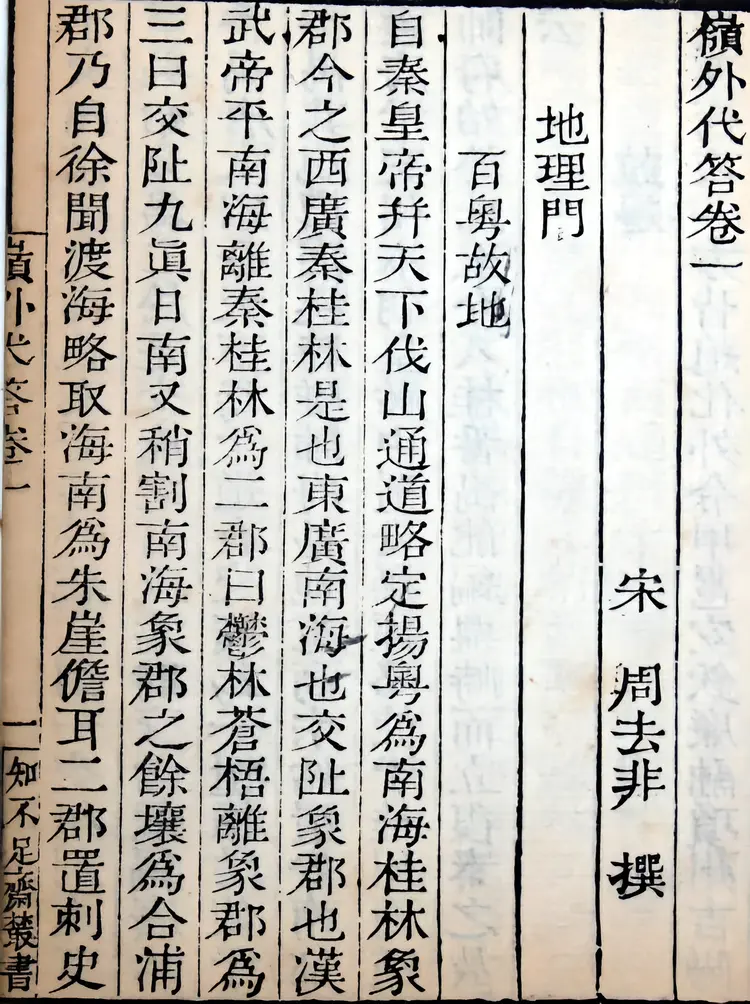 嶺外代答卷一
宋 周去非 撰
地理門
百粵故地
自秦皇帝并天下伐山通道略定揚粵爲南海桂林象
郡今之西廣秦桂林是也東廣南海也交阯象郡也漢
武帝平南海離秦桂林爲二郡曰鬱林蒼梧離象郡爲
三曰交阯九眞日南又稍割南海象郡之餘壤爲合浦
郡乃自徐聞渡海略取海南爲朱崖儋耳二郡置刺史
嶺外代答卷一
一
知不足齋叢書